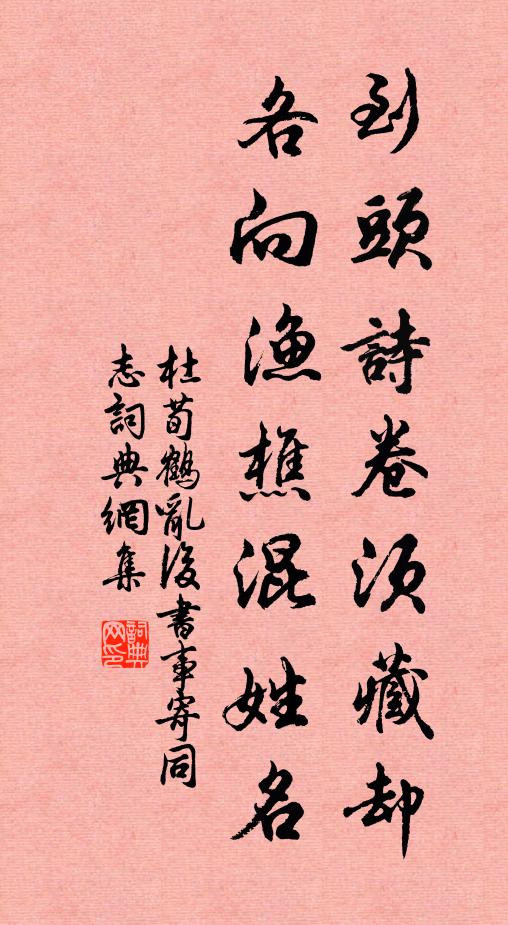 到頭詩卷須藏却
各向漁樵混姓名
杜荀鶴亂後書事寄同
志詞典網集
詞典网印